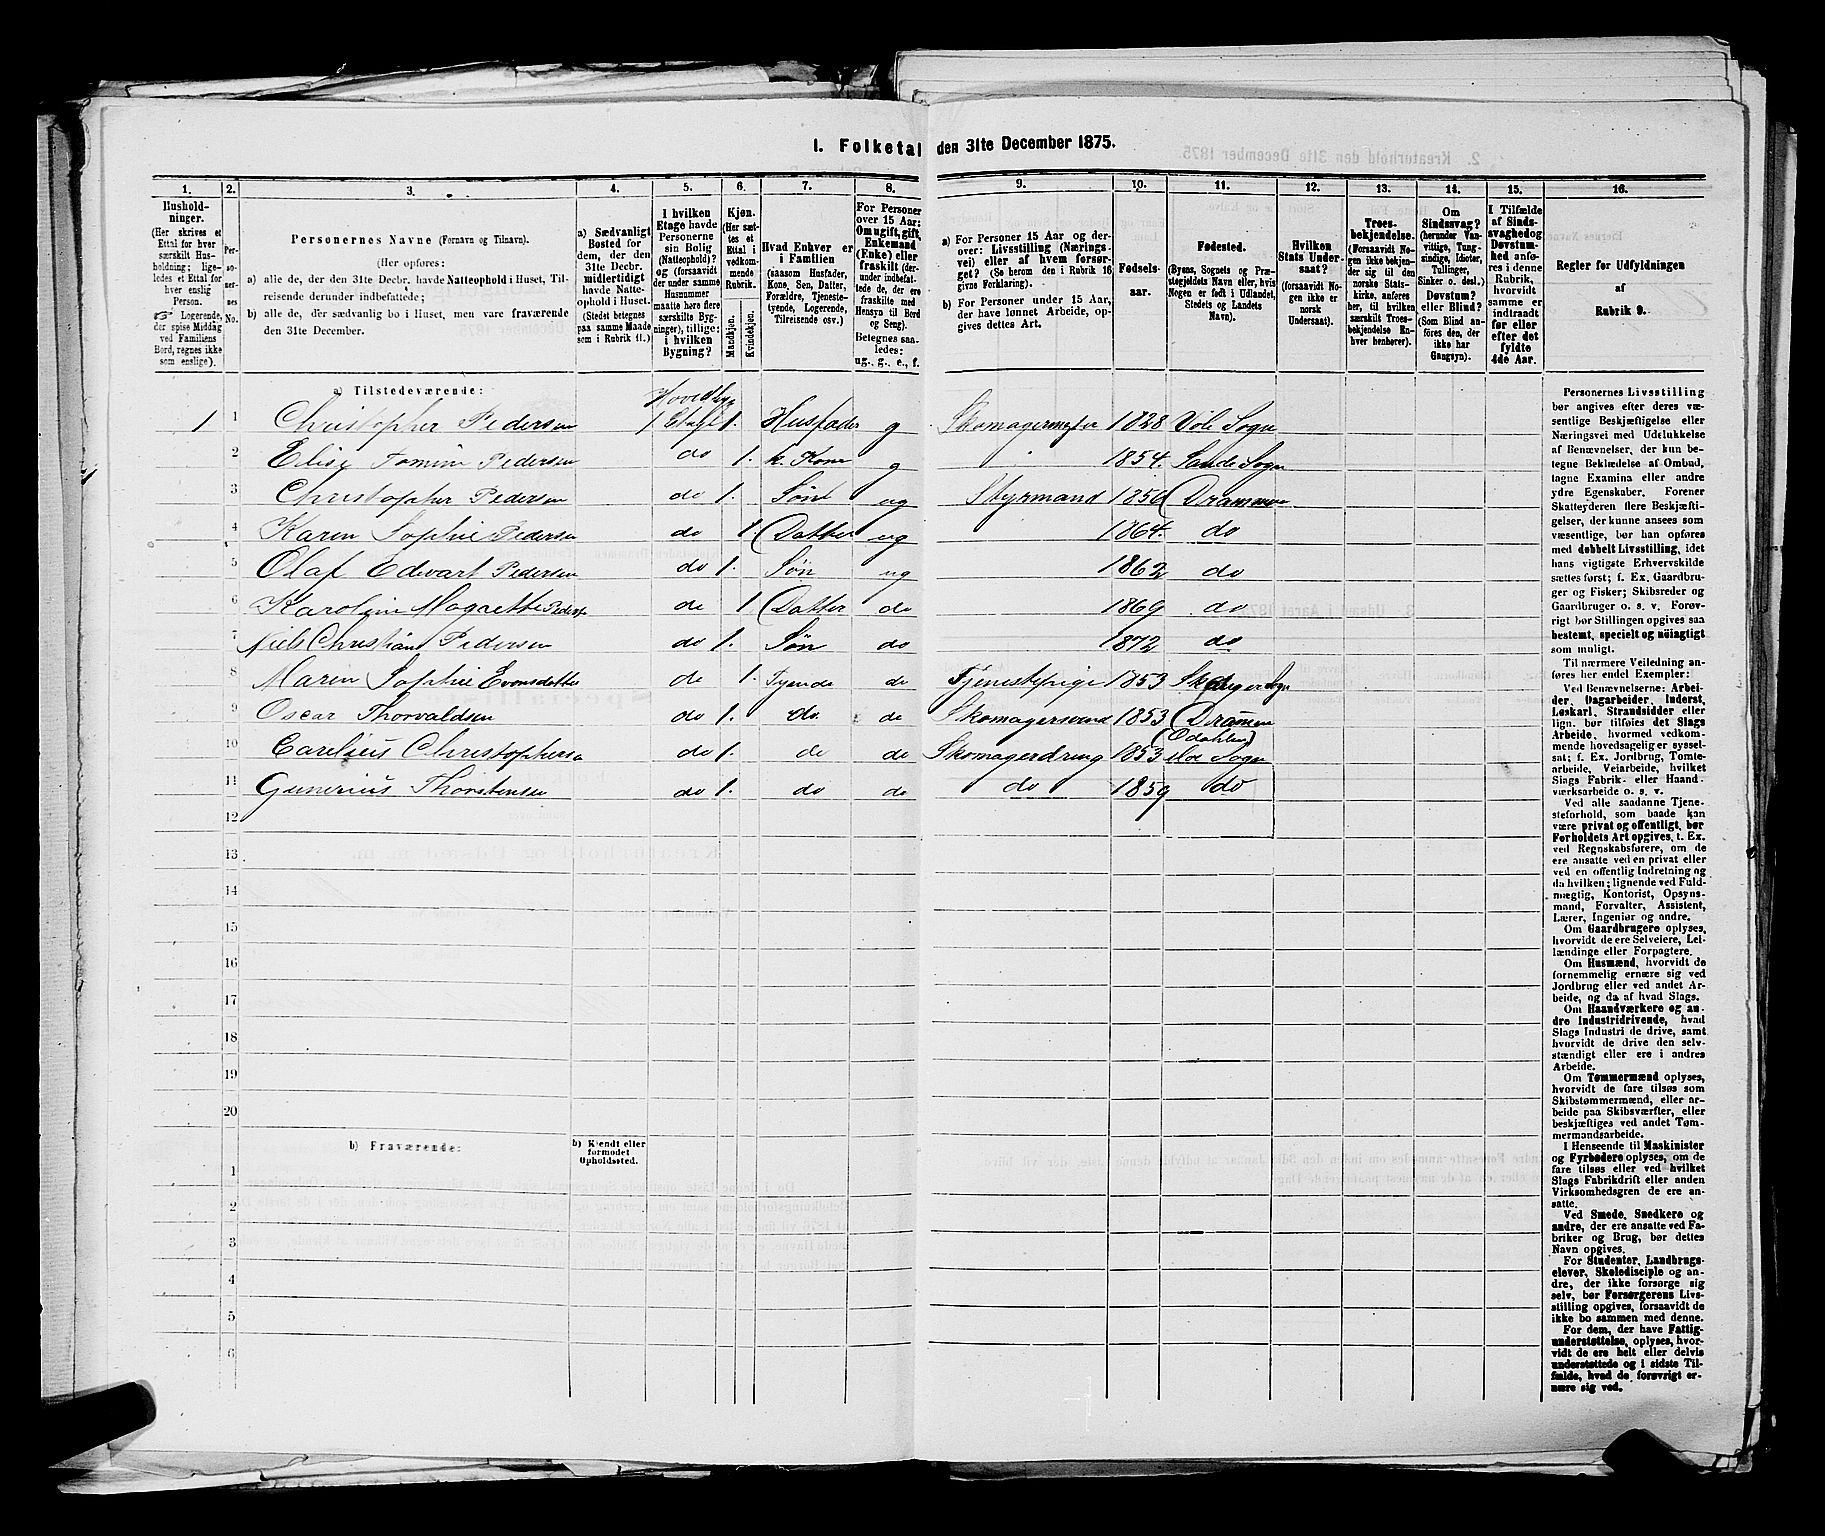 1. Folketal den 31te December 1875.
1. 2. 3. 4. 5. 6. 7. 8. 9. 10. 11. 12. 13. 14. 15. 16.
Hushold-
ninger.
(Her skrives et
Ettal for hver
særskilt Hus-
holdning; lige-
ledes et Ettal for
hver enslig
Person.
☞ Logerende,
der spise Middag
ved Familiens
Bord, regnes ikke
som enslige).
Per-
so-
ner-
nes
No.
Personernes Navne (Fornavn og Tilnavn).
(Her opføres:
a) alle de, der den 31te Decbr. havde Natteophold i Huset, Til-
reisende derunder indbefattede;
b) alle de, der sædvanlig bo i Huset, men vare fraværende
den 31te December.
a) Sædvanligt
Bosted for
dem, der den
31te Decbr.
midlertidigt
havde Natte-
ophold i Huset.
(Stedet betegnes
paa samme Maade
som i Rubrik 11.)
I hvilken
Etage havde
Personerne
sin Bolig
(Natteophold)?
og (forsaavidt
der under samme
Husnummer
maatte høre flere
særskilte Byg-
ninger), tillige:
i hvilken
Bygning?
Kjøn.
(Her sæt-
tes et
Ettal i
vedkom-
mende
Rubrik.
Mandkjøn.
Kvindekjøn.
Hvad Enhver er
i Familien
(saasom Husfader,
Kone, Søn, Datter,
Forældre, Tjeneste-
tyende, Logerende,
Tilreisende osv.)
For Personer
over 15 Aar:
Om ugift, gift,
Enkemand
(Enke) eller
fraskilt (der-
under indbefat-
tede de, der ere
fraskilte med
Hensyn til Bord
og Seng).
Betegnes saa-
ledes:
ug., g., e., f.
a) For Personer 15 Aar og der-
over: Livsstilling (Nærings-
vei) eller af hvem forsør-
get? (Se herom den i Rubrik 16
givne Forklaring).
b) For Personer under 15 Aar,
der have lønnet Arbeide, op-
gives dettes Art.
Fødsels-
aar.
Fødested.
(Byens, Sognets og Præ-
stegjeldets Navn eller, hvis
Nogen er født i Udlandet,
Stedets og Landets
Navn).
Hvilken
Stats Under-
saat?
(forsaavidt No-
gen ikke er
norsk
Undersaat).
Troes-
bekjendelse.
(Forsaavidt No-
gen ikke bekjen-
der sig til den
norske Stats-
kirke, anføres
her, til hvilken
særskilt Troes-
bekjendelse En-
hver henhører).
Om
Sindssvag?
(herunder Van-
vittige, Tung-
sindige, Idioter,
Tullinger,
Sinker o. desl.)
Døvstum?
eller Blind?
(Som Blind an-
føres den, der
ikke har
Gangsyn).
I Tilfælde
af Sinds-
svaghed og
Døvstum-
hed anfø-
res i denne
Rubrik,
hvorvidt
samme er
indtraadt
før eller
efter det
fyldte
4de Aar.
Regler for Udfyldningen
af
Rubrik 9.
a) Tilstedeværende:
1 1 Christopher Pedersen 1 Etage 1. Husfader g 1828 Sogn
2 Elise Pedersen do 1. k. Kone g 1854. Sande Sogn
3 Christopher Pedersen do 1. Søn ug Styrmand Drammen
4 Karen Sophie Pedersen do 1 Datter ug 1864. do
5 Olaf Edvart Pedersen do 1. Søn ug 1862 do
6 Karoline Magrette do 1 Datter do 1869 do
7 Niels Christian Pedersen do 1. Søn do 1872 do
8 Maren Sophie do 1. Tyende do Tjenestepige 1853 Skoger Sogn
9 Oscar Thorvaldsen do 1. do. do Skomagersvend 1853 Dramen
10 Carelius do 1. do do Skomagerdreng 1853 Sogn
11 Gunerius Thorstensen do 1. do do do 1859 do
12
13
14
15
16
17
18
19
20
b) Fraværende:
b) Kjendt eller
formodet
Opholdssted.
1
2
3
4
5
6
Personernes Livsstilling
bør angives efter deres væ-
sentlige Beskjæftigelse eller
Næringsvei med Udelukkelse
af Benævnelser, der kun be-
tegne Beklædelse af Ombud,
tagne Examina eller andre
ydre Egenskaber. Forener
Skatteyderen flere Beskjæfti-
gelser, der kunne ansees som
væsentlige, bør han opføres
med dobbelt Livsstilling, idet
hans vigtigste Erhvervskilde
sættes først; f. Ex. Gaardbru-
ger og Fisker; Skibsreder og
Gaardbruger o. s. v. Forøv-
rigt bør Stillingen opgives saa
bestemt, specielt og nøiagtigt
som muligt.
Til nærmere Veiledning an-
føres her endel Exempler:
Ved Benævnelserne: Arbei-
der, Dagarbeider, Inderst,
Løskarl, Strandsidder eller
lign. bør tilføies det Slags
Arbeide, hvormed vedkom-
mende hovedsagelig er syssel-
sat; f. Ex. Jordbrug, Tomte-
arbeide, Veiarbeide, hvilket
Slags Fabrik- eller Haand-
værksarbeide o. s. v.
Ved alle saadanne Tjene-
steforhold, som baade kan
være privat og offentligt, bør
Forholdets Art opgives, t. Ex.
ved Regnskabsførere, om de
ere ansatte ved en privat eller
ved en offentlig Indretning og
da hvilken; lignende ved Fuld-
mægtig, Kontorist, Opsyns-
mand, Forvalter, Assistent,
Lærer, Ingeniør og andre.
Om Gaardbrugere oplyses,
hvorvidt de ere Selveiere, Lei-
lændinge eller Forpagtere.
Om Husmænd, hvorvidt de
fornemmelig ernære sig ved
Jordbrug eller ved andet Ar-
beide, og da af hvad Slags.
Om Haandværkere og an-
dre Industridrivende, hvad
Slags Industri de drive, samt
hvorvidt de drive den selv-
stændigt eller ere i andres
Arbeide.
Om Tømmermænd oplyses,
hvorvidt de fare tilsøs som
Skibstømmermænd, eller ar-
beide paa Skibsværfter, eller
beskjæftiges ved andet Tøm-
mermandsarbeide.
I Henseende til Maskinister
og Fyrbødere oplyses, om de
fare tilsøs eller ved hvilket
Slags Fabrikdrift eller anden
Virksomhedsgren de ere an-
satte.
Ved Smede, Snedkere og
andre, der ere ansatte ved Fa-
briker og Brug, bør dettes
Navn opgives.
For Studenter, Landbrugs-
elever, Skoledisciple og an-
dre, der ikke forsørge sig
selv, bør Forsørgerens Livs-
stilling opgives, forsaavidt de
ikke bo sammen med denne.
For dem, der have Fattig-
understøttelse, oplyses, hvor-
vidt de ere helt eller delvis
understøttede og i sidste Til-
fælde, hvad de forøvrigt er-
nære sig ved.